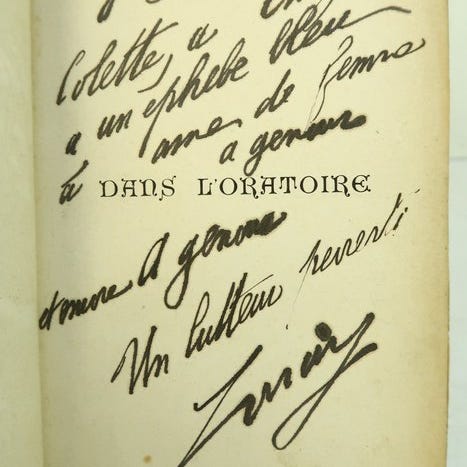 Colette, a
a un ephebe bleu
à ame de femme
a genoux
DANS L'ORATOIRE
et encore A genoux
Un lutteur perverti
Lorrain